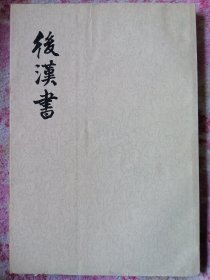 後漢書